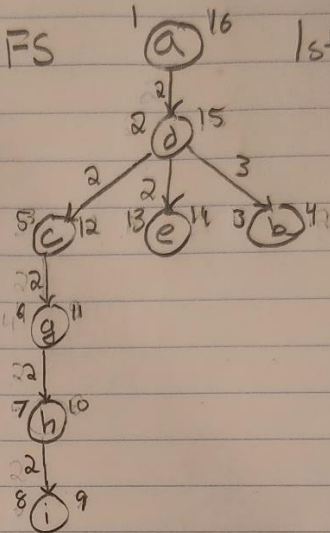 FS 1 a 16 1s
2
2 d 15
2 2 3
5 c 12 13 e 14 3 b 4
2
6 g 11
2
7 h 10
2
8 i 9